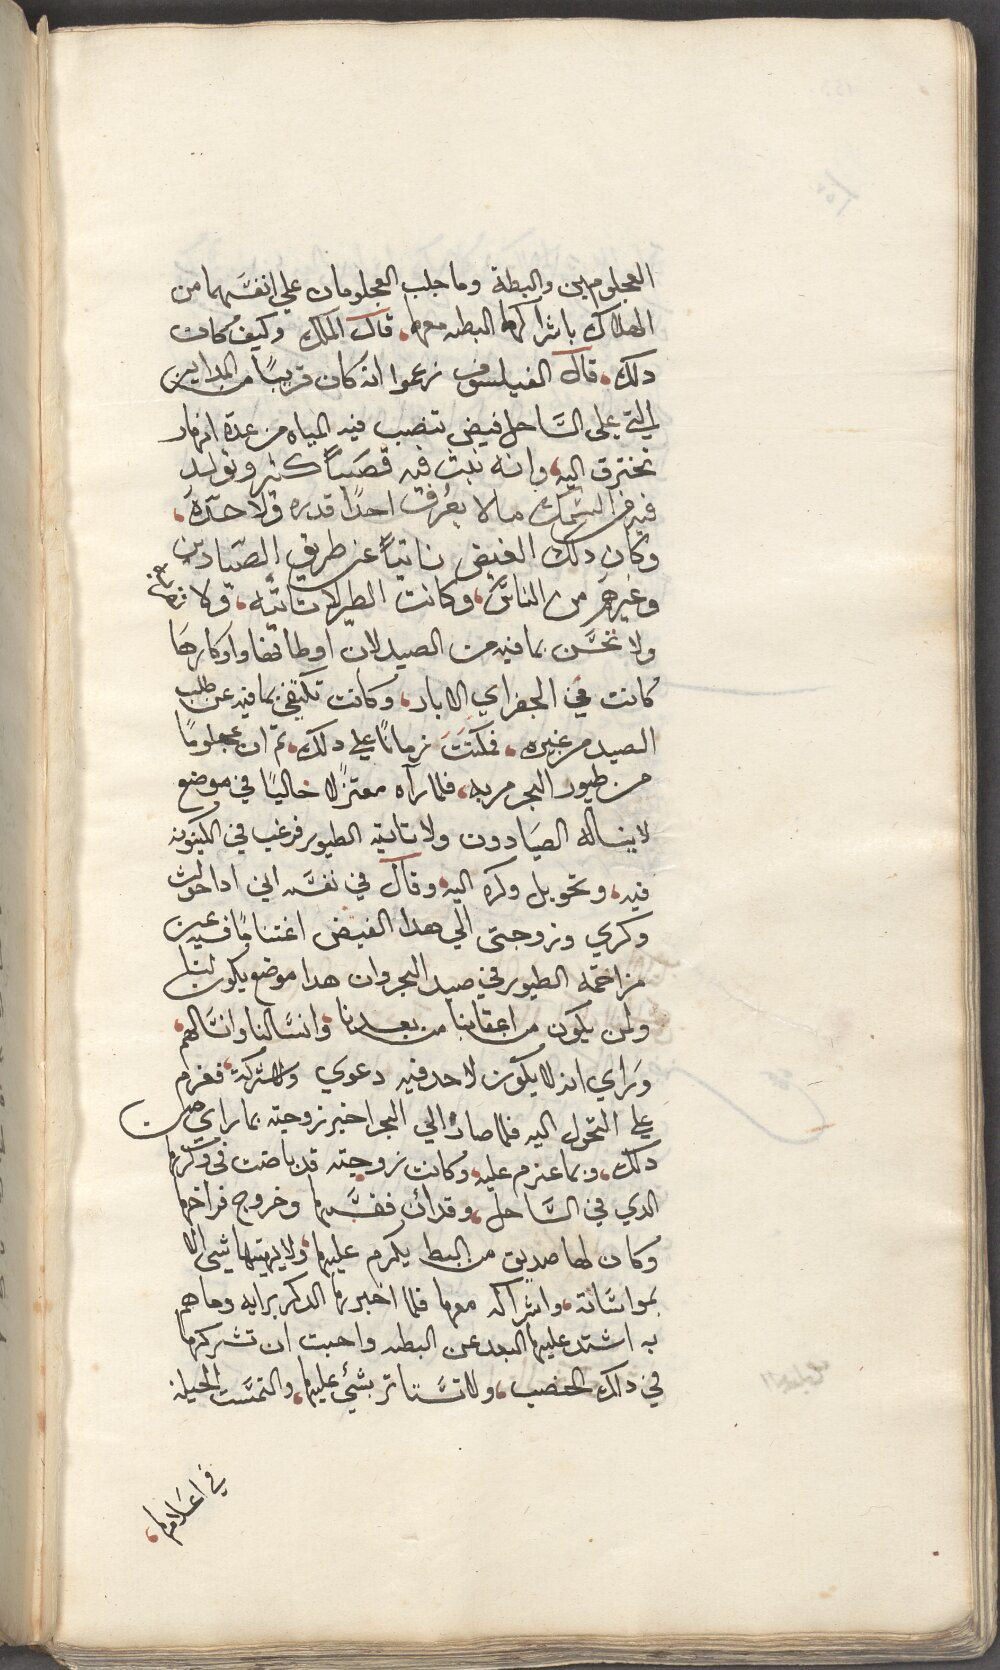 العجلومين والبطة وما جلب العجلومان علي انفسهما من
الهلاك باشراكهما البطه معهما. قال الملك وكيف كان
دلك. قال الفيلسوف زعموا انه كان قريبًا من المداين
التي علي الساحل فيض تنصب فيه المياه من عدة انهار
تخترق اليه، وانه نبت فيه قصبًا كثير وتولد
فيه من السمك ما لا يعرف احدًا قدره ولا حده،
وكان دلك الفيض نائيًا عن طريق الصيادين
وغيرهم من الناس، وكانت الطير لا تاتيه، ولا
ولا تحسن بما فيه من الصيد لان اوطانها واوكارها
كانت في الجزاير الكبار، وكانت تكتفي بما فيه عن طلب
الصيد من غيره، فمكثت زمانًا علي دلك، تم ان عجلومًا
من طيور البحر مر به، فلما رآه معتزلًا خاليًا في موضع
لا يناله الصيادون ولا تاتيه الطيور فرغب في الكينونه
فيه، وتحويل وكره اليه وقال في نفسه اني ادا حولت
وكري وزوجتي الي هدا الفيض اغتنا ما فيه عن
مزاحمة الطيور في صيد البحر وان هدا موضع يكون لنا
ولمن يكون من اعقابنا من بعدنا وانسالنا وانسالهم،
وراي انه لا يكون لاحد فيه دعوي ولا شركة، فعزم
علي التحول اليه فلما صار الي البحر اخبر زوجته بما راي من
دلك، وبما عزم عليه، وكانت زوجته قد باضت في وكرهما
الدي في الساحل، وقد ان فقسهما وخروج فراخهما
وكان لها صديق من البط يكرم عليهما، ولا يهنيهما شي الا
بمواساته، واشراكه معهما فلما اخبرها الدكر برايه وما هم
به اشتد عليها البعد عن البطه واحبت ان تشركهما
في دلك الخصب، ولا تستاتر بشيء عليها، والتمست الحيلة
في اعلامها،